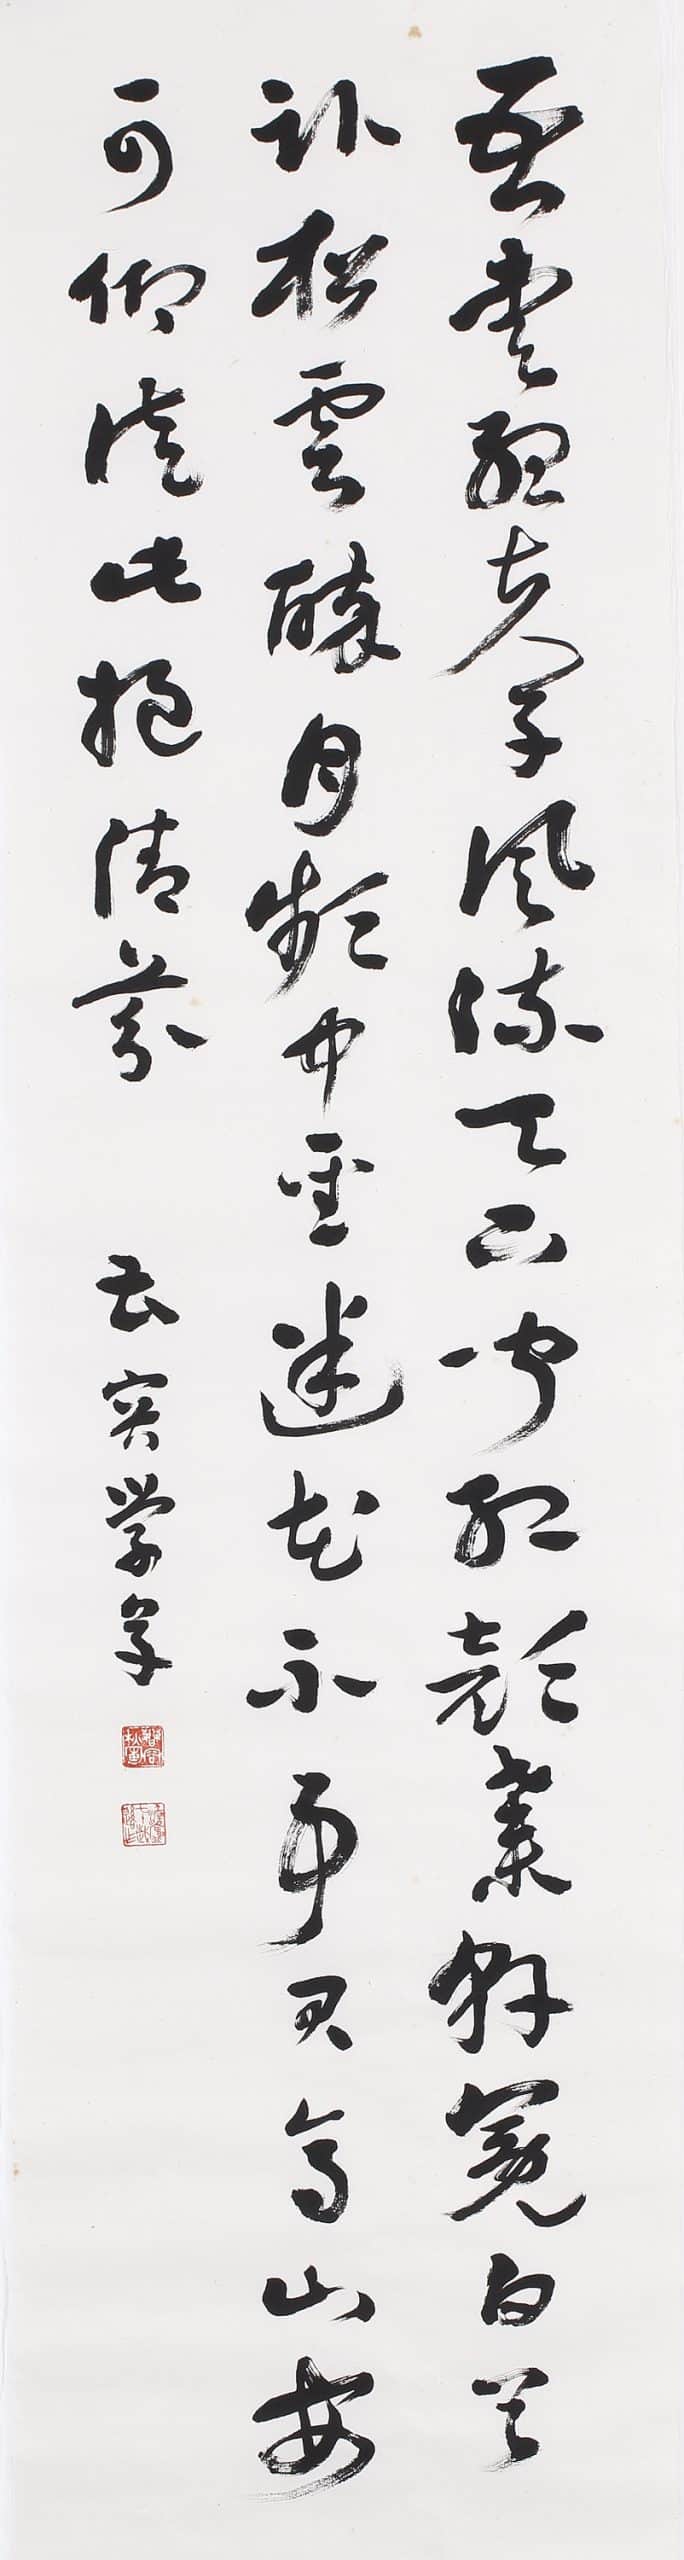 吾愛孟夫子風流天下聞紅顏棄軒冕白首
臥松雲醉月頻中聖迷花不事君高山安
可仰徒此挹清芬
学